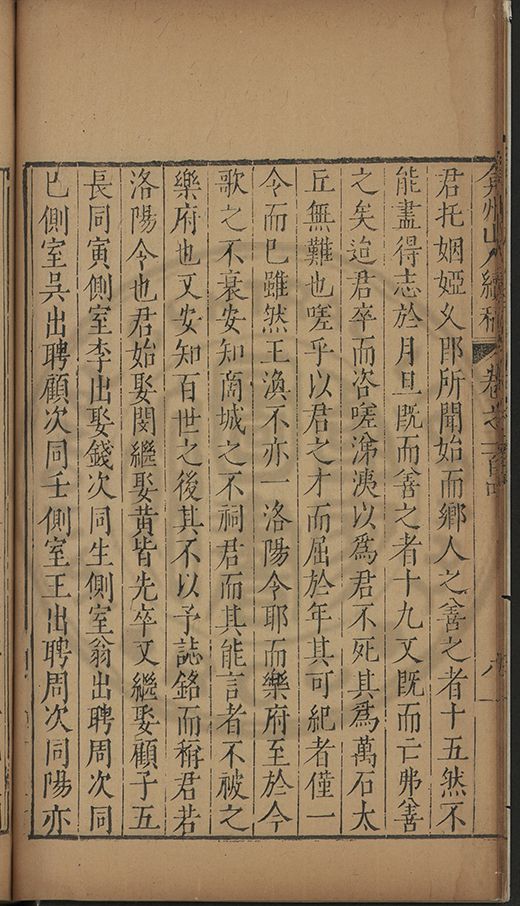 弇州山人續稿 卷之一百 八
君托姻婭久即所聞始而鄉人之善之者十五然不
能盡得志於月旦既而善之者十九又既而亡弗善
之矣迨君卒而咨嗟涕洟以爲君不死其爲萬石太
丘無難也嗟乎以君之才而屈於年其可紀者僅一
令而已雖然王渙不亦一洛陽令耶而樂府至於今
歌之不衰安知商城之不祠君而其能言者不被之
樂府也又安知百世之後其不以予誌銘而稱君若
洛陽令也君始娶閔繼娶黃皆先卒又繼娶顧子五
長同寅側室李出娶錢次同生側室翁出聘周次同
巳側室吳出聘顧次同壬側室王出聘周次同陽亦